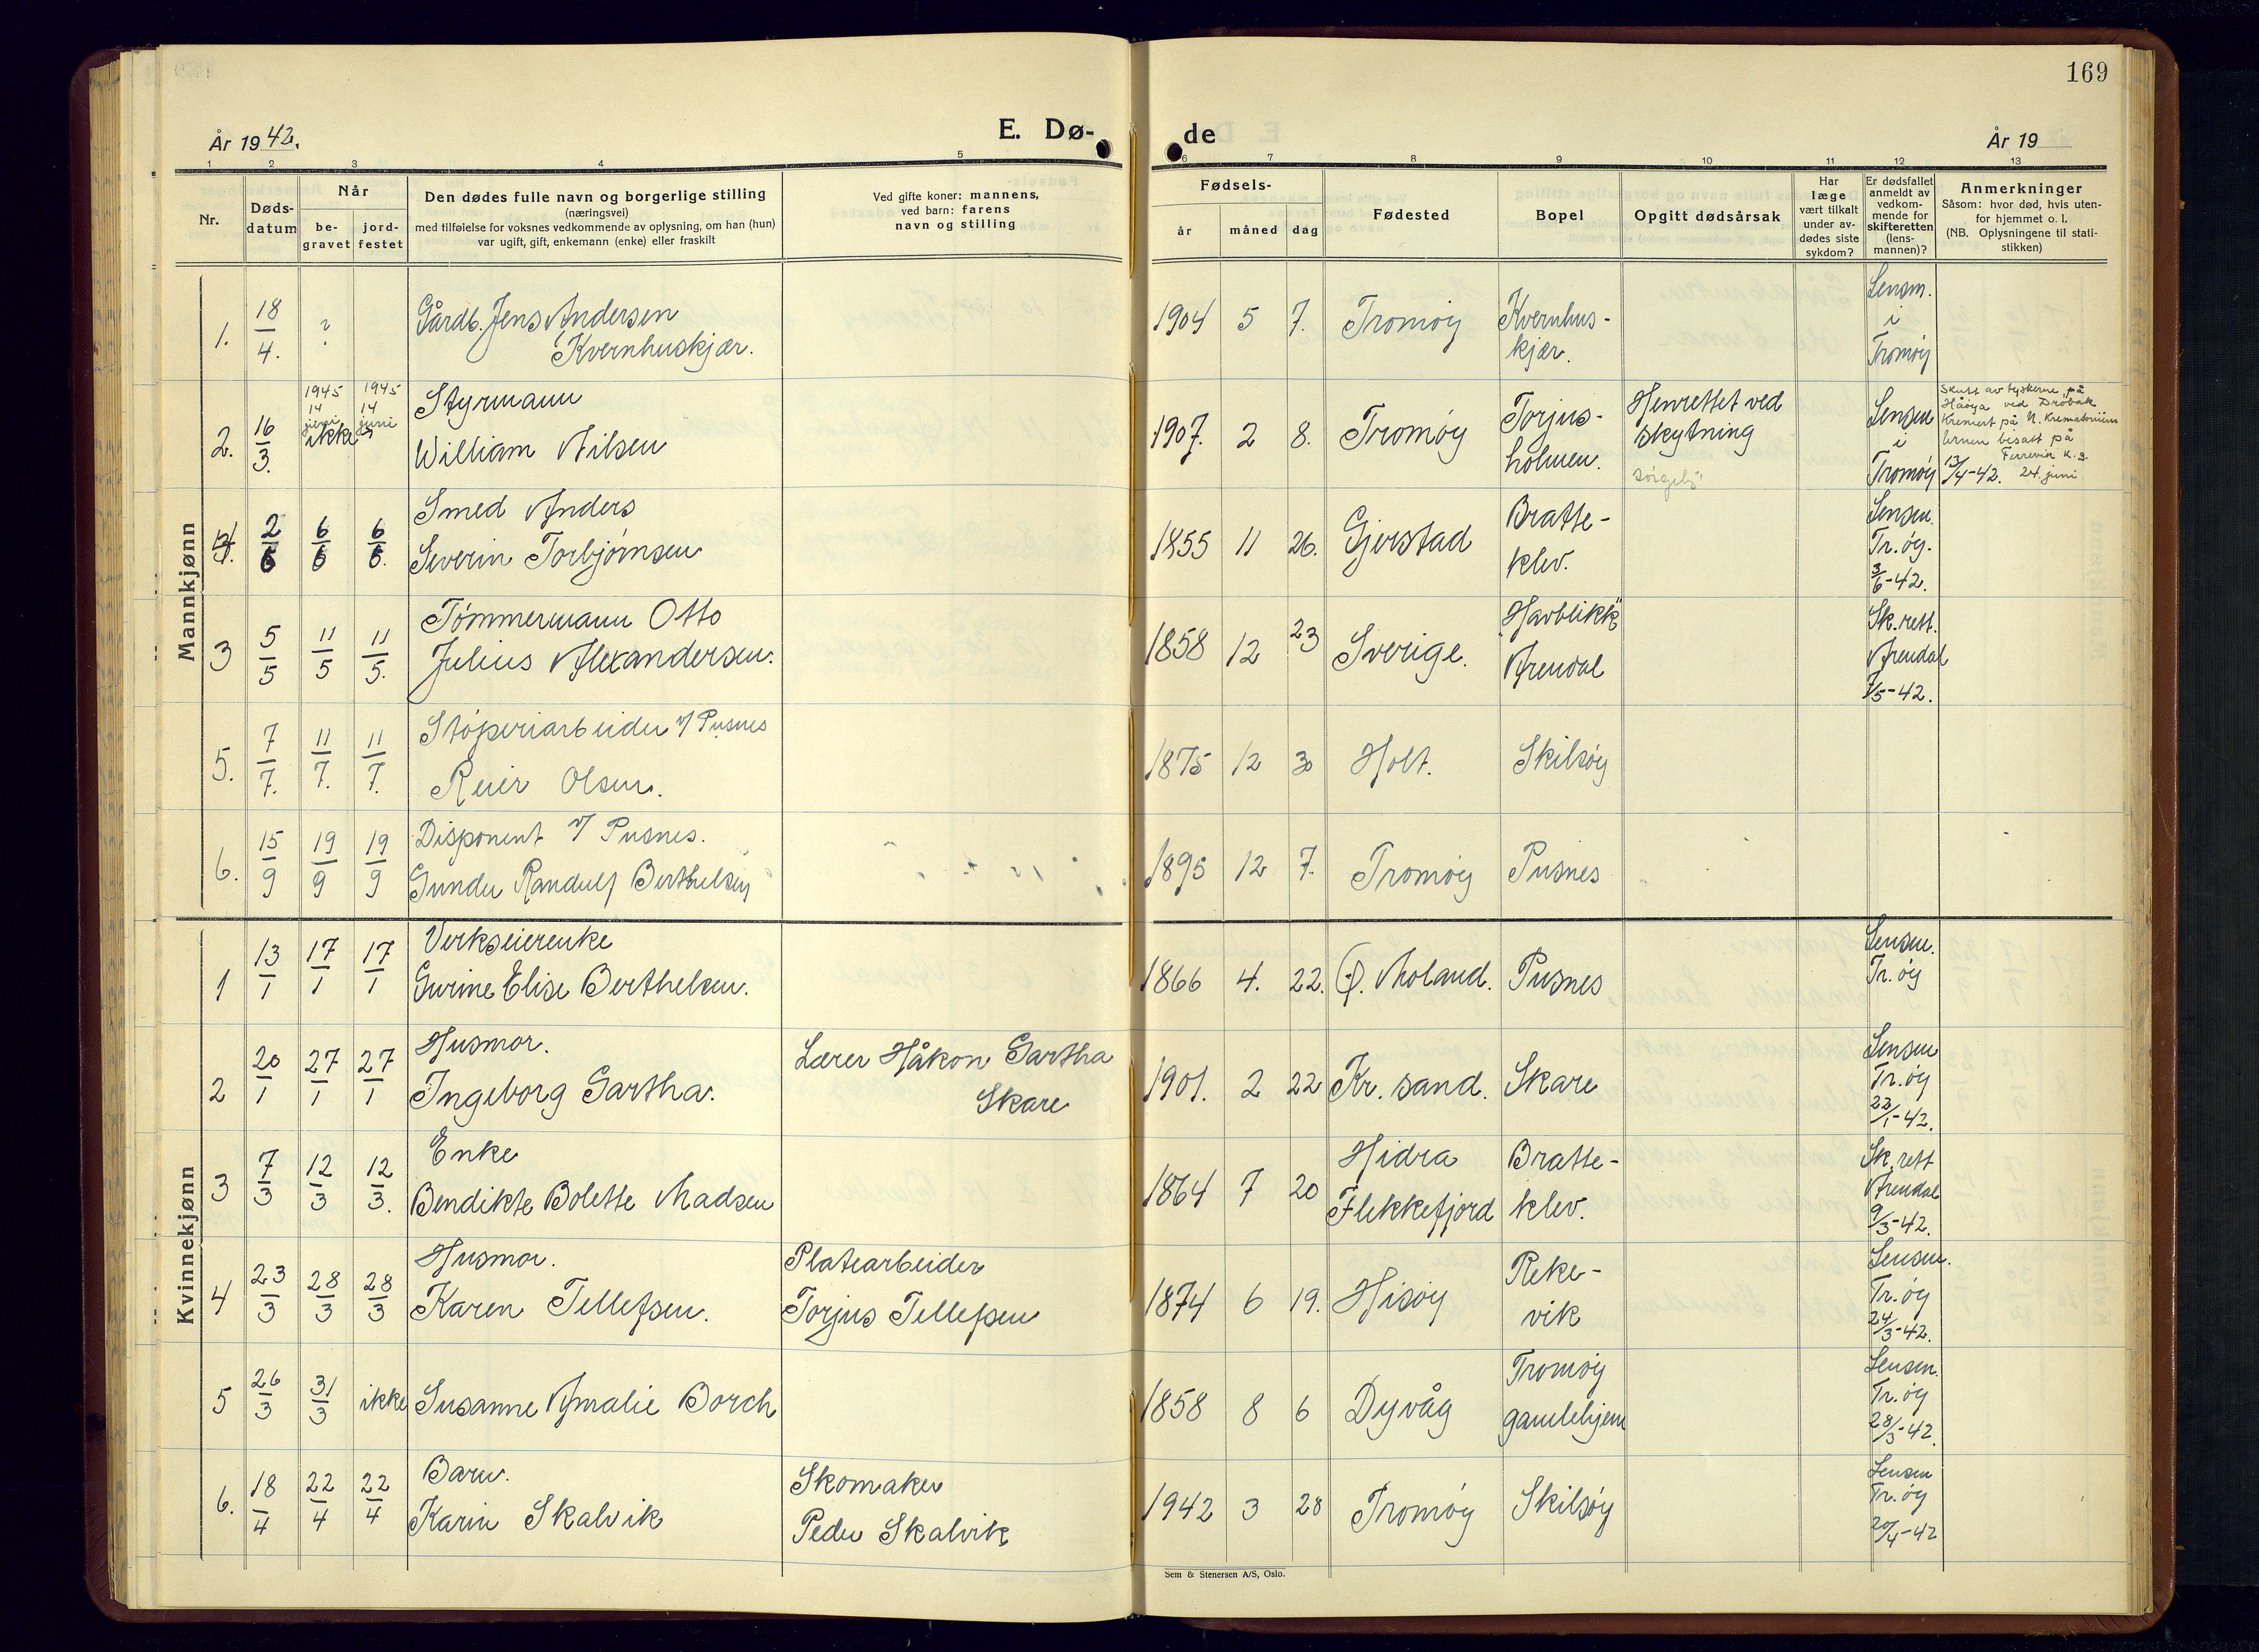 169
År 1942.
E. Dø-
de
År 19
1 2 3 4 5 6 7 8 9 10 11 12 13
Nr.
Døds-
datum
Når
be-
gravet
jord-
festet
Den dødes fulle navn og borgerlige stilling
(næringsvei)
med tilføielse for voksnes vedkommende av oplysning, om han (hun)
var ugift, gift, enkemann (enke) eller fraskilt
Ved gifte koner: mannens,
ved barn: farens
navn og stilling
Fødsels-
år
måned
dag
Fødested
Bopel
Opgitt dødsårsak
Har
læge
vært tilkalt
under av-
dødes siste
sykdom?
Er dødsfallet
anmeldt av
vedkom-
mende for
skifteretten
(lens-
mannen)?
Anmerkninger
Såsom: hvor død, hvis uten-
for hjemmet o. l.
(NB. Oplysningene til stati-
stikken)
Mannkjønn
1. 18/4. ? Gårdb. Jens Andersen
Kvernhuskjær.
1904 5 7. Tromøy Kvernhus-
kjær.
Lensm.
i
Tromøy
2. 16/3. 1945 14 juni ikke 1945 14 juni
Styrmann
William Nilsen
1907. 2 8. Tromøy Torjus-
holmen.
Henrettet ved
skytning
Lensm
i
Tromøy
Skutt av tyskerne på
Håøya ved Drøbak
Kremert på N. Krematorium
Urnen bisatt på
Færevik k.g.
13/4-42. 24. juni
4. 2/6 6/6 6/6. Smed Anders
Severin Torbjørnsen
1855 11 26. Gjerstad Bratte-
klev.
Lensm.
Tr.øy.
3/6-42.
3 5/5 11/5 11/5. Tømmermann Otto
Julius Alexandersen.
1858 12 23 Sverige. "Havblikk"
Arendal
Sk.rett.
Arendal
7/5-42.
5. 7/7. 11/7. 11/7. Støperiarbeider v/ Pusnes
Reier Olsen.
1875 12 3 Holt. Skilsøy
6. 15/9 19/9 19/9 Disponent v/ Pusnes.
Gunder Randulf Berthelsen
1895 12 7. Tromøy Pusnes
Kvinnekjønn
1 13/1 17/1 17/1 Verkseierenke
Gurine Elise Berthelsen.
1866 4. 22. Ø. Moland. Pusnes
Lensm.
Tr.øy
2 20/1 27/1 27/1 Husmor.
Ingeborg Gartha.
Lærer Håkon Gartha
Skare
1901. 2 22 Kr. sand. Skare
Lensm
Tr.øy
22/1-42.
3 7/3 12/3 12/3. Enke
Bendikte Bolette Madsen
1864 7 20 Hidra
Flekkefjord
Bratte-
klev.
Sk.rett
Arendal
9/3-42.
4 23/3 28/3 28/3 Husmor.
Karen Tellefsen.
Platearbeider
Torjus Tellefsen
1874 6 19. Hisøy Reke-
vik
Lensm.
Tr.øy
24/3-42.
5 26/3 31/3 ikke Susanne Amalie Borch
1858 8 6 Dyvåg Tromøy
gamlehjem
Lensm.
Tr.øy
28/3-42.
6. 18/4 22/4 22/4 Barn.
Karin Skalvik
Skomaker
Peder Skalvik
1942 3 28 Tromøy Skilsøy
Lensm
Tr.øy
20/4-42
Sem & Stenersen A/S, Oslo.